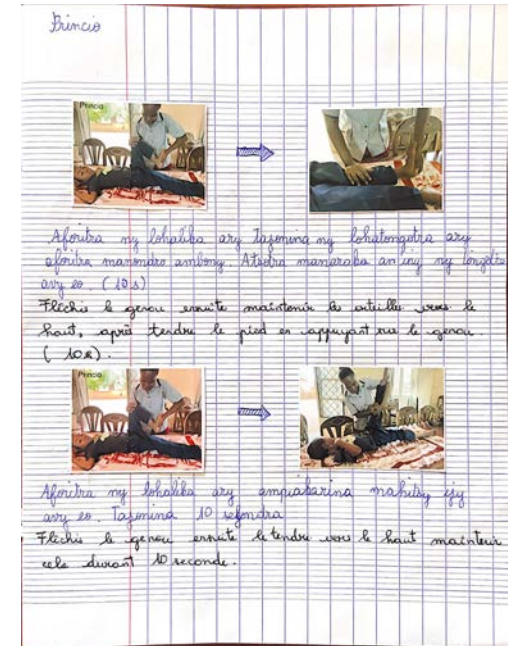 Princio
Princio
Aforitra ny lohalika ary Tazonina ny lohatongotra ary
aforitra manondro ambony. Atsotra manaraka an'iny ny longotra
avy eo. (10s)
Fléchir le genou ensuite maintenir les orteilles vers le
haut, après tendre le pied en appuyant sur le genou
(10s).
Princio
Aforitra ny lohalika ary ampiakarina mahitsy izy
avy eo. Tazonina 10 segondra
Fléchir le genou ensuite le tendre vers le haut maintenir
cela durant 10 seconde.